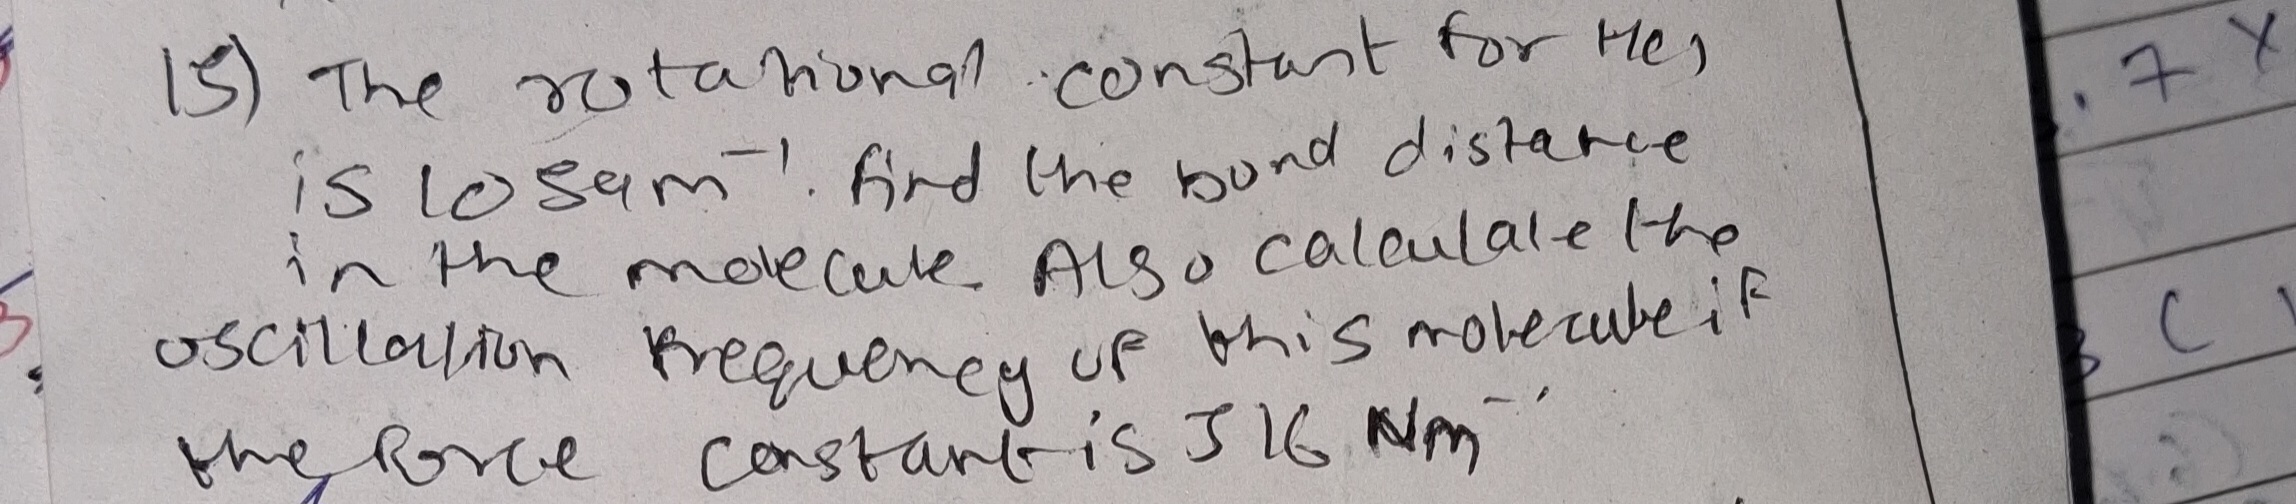 15) The rotational constant for Hcl
is 10.59cm⁻¹. find the bond distance
in the molecule. Also calculate the
oscillation frequency of this molecule if
the force constant is 516 Nm⁻¹
. 7 x